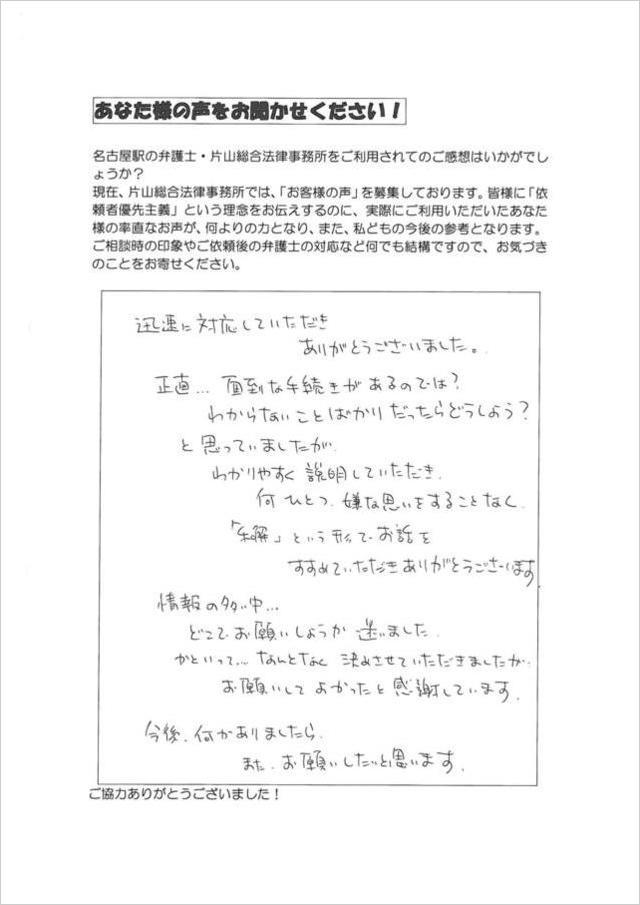 あなた様の声をお聞かせください！
名古屋駅の弁護士・片山総合法律事務所をご利用されてのご感想はいかがでし
ょうか？
現在、片山総合法律事務所では、「お客様の声」を募集しております。皆様に「依
頼者優先主義」という理念をお伝えするのに、実際にご利用いただいたあなた
様の率直なお声が、何よりの力となり、また、私どもの今後の参考となります。
ご相談時の印象やご依頼後の弁護士の対応など何でも結構ですので、お気づき
のことをお寄せください。
迅速に対応していただき
ありがとうございました。
正直… 面到な手続きがあるのでは？
わからないことばかりだったらどうしよう？
と思っていましたが、
わかりやすく説明していただき、
何ひとつ、嫌な思いをすることなく、
「和解」という形で お話を
すすめていただきありがとうございます。
情報の多い中…
どこでお願いしようか 迷いました。
かといって… なんとなく 決めさせていただきましたが、
お願いして よかったと 感謝しています。
今後、何かありましたら、
また、お願いしたいと思います。
ご協力ありがとうございました！